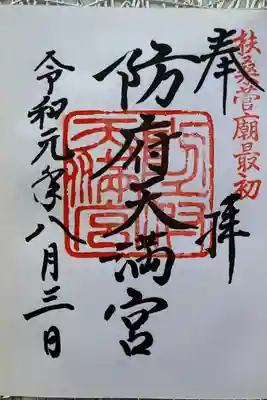 扶桑菅廟最初
奉拝
防府天満宮
令和元年八月三日